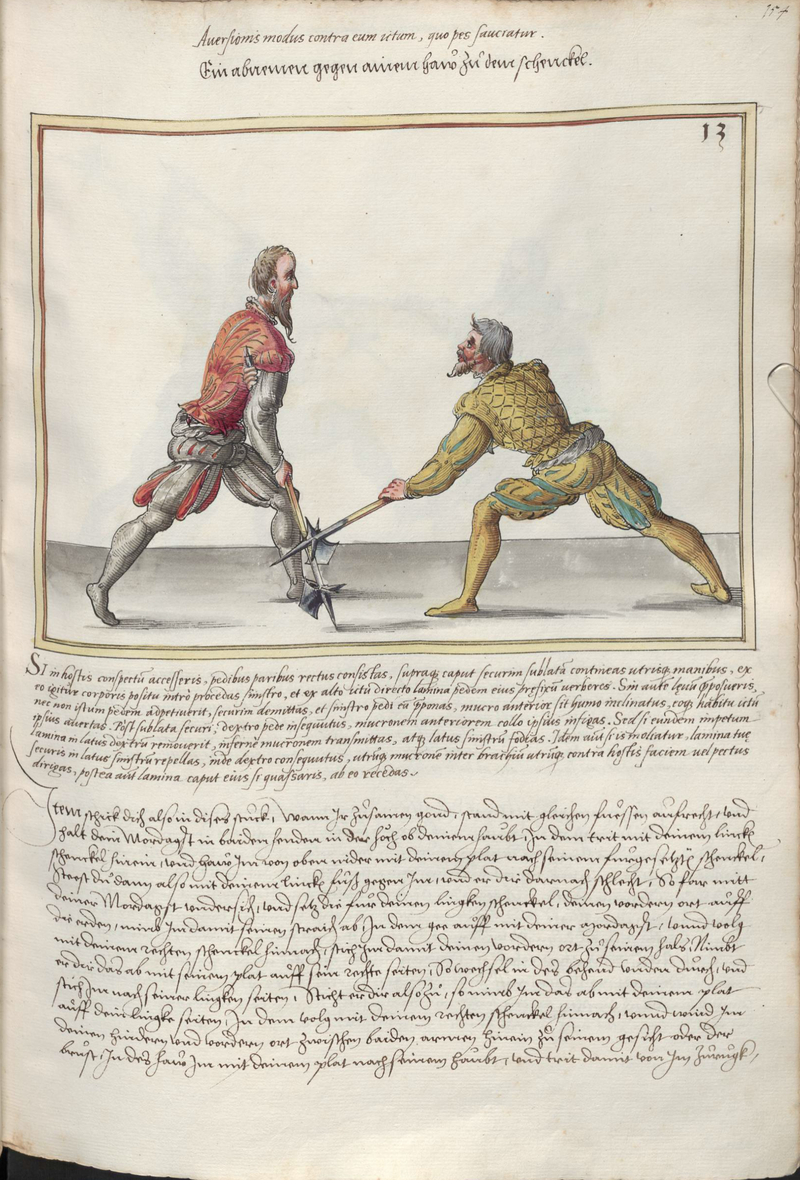 154
Aversionis modus contra eum ictum, quo pes sauciatur.
Ein abnemen gegen ainem haw zů dem schenckel.
13
SI in hostis conspectū accesseris, pedibus paribus rectus consistas, supraq; caput securim sublatā contineas utrisq; manibus, ex
eo igitur corporis positu intrò procedas sinistro, et ex alto ictu directo lamina pedem eius prefixū verberes. Sin autē levū opposueris,
nec non istum pedem adpetiverit, securim demittas, et sinistro pedi eā opponas, mucro anterior sit humo inclinatus, eoq; habitu ictū
ipsius avertas. Post sublata securi, dextro pede insequutus, mucronem anteriorem collo ipsius infigas. Sed si eundem impetum
lamina in latus dextrū removerit, infernè mucronem transmittas, atq; latus sinistrū fodeas. Idem aūt si is moliatur, lamina tuę
securis in latus sinistrū repellas, inde dextro consequutus, utrūq; mucronē inter brachiū utrūq; contra hostis faciem vel pectus
dirigas, postea aūt lamina caput eius si quassaris, ab eo recedas.
Item schick dich also in dises stuck, Wann Ir zůsamen gond, stand mit gleichen fuessen aufrecht, und
halt dein Mordagst in baiden henden in der höch ob deinem haubt, In dem trit mit deinem lincken
schenckel hinein, und haw Im von oben nider mit deinem plat nach seinem furgesetztē schenckel,
Steest du dann also mit deinem lincken fůß gegen Im, und er dir darnach schlecht, So far mitt
deiner Mordagst undersich, und setz die für deinen lingken schenckel, deinen vordern ort auff
die erden, nimb Im damit seinen straich ab, In dem gee auff mit deiner mordagst, unnd volg
mit deinem rechten schenckel hinnach, stich Im damit deinen vordern ort zů seinem hals, Nimbt
er dir das ab mit seinem plat auff sein rechte seiten, So wechsel in des behend unden durch, und
stich Im nach seiner lingken seiten, Sticht er dir also zů, so nimb Im das ab mit deinem plat
auff dein lingke seiten, In dem volg mit deinem rechten schenckel hinnach, unnd wind Im
deinen hindern und vordern ort zwischen baiden armen hinein zů seinem gesicht oder der
brust, In des haw Im mit deinem plat nach seinem haubt, und trit damit von Im zurugk,